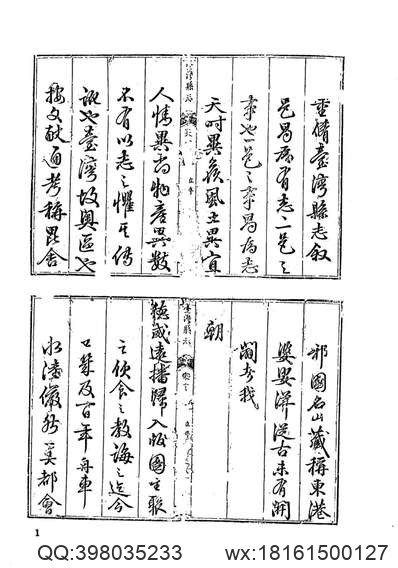 重脩臺灣縣志叙
邑曷為有志一邑之
事也一邑之事曷為志
天時異候風土異宜
臺灣縣志
人情異尚物產異數
不有以志之懼其傳
訛也臺灣故奧區也
按文獻通考稱毘舍
邪國名山藏稱東港
從古未有開
闢者我
朝
臺灣縣志
威遠播歸入版圖生聚
之飲食之教誨之迄今
幾及百年舟車
湊儼然一都會
1
QQ:398035233 wx:18161500127